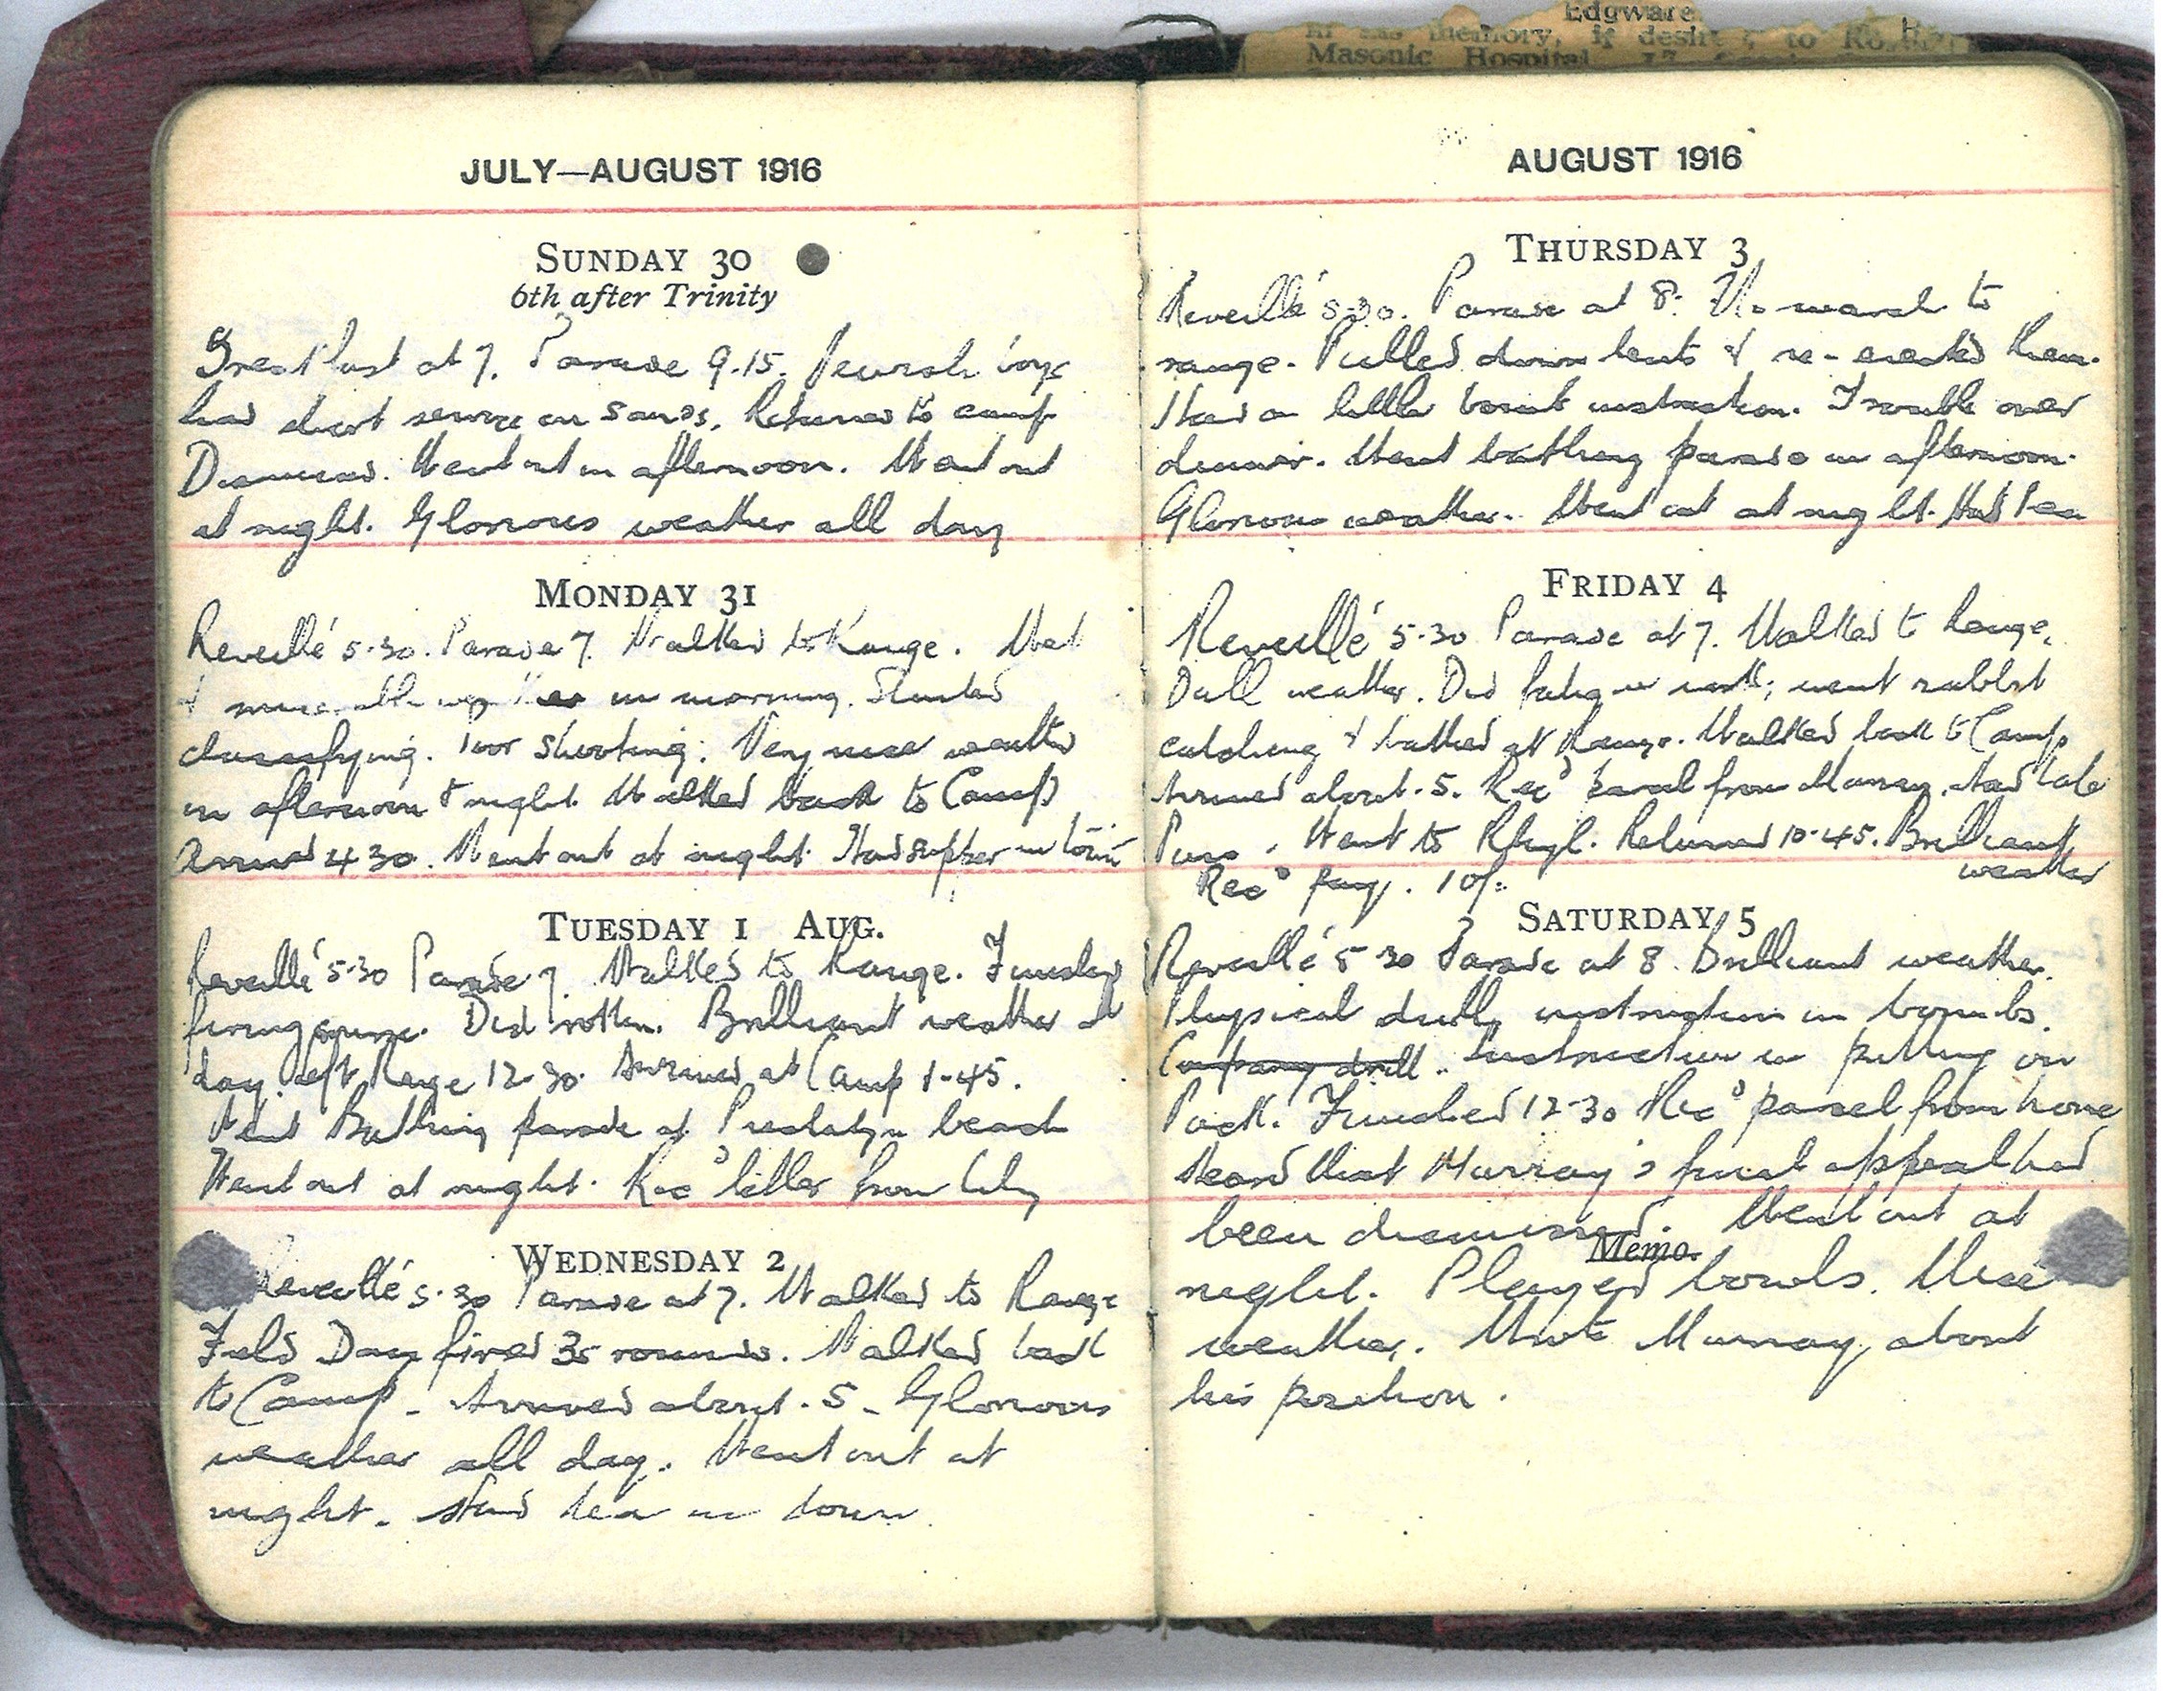 Edgware
in his memory, if desired, to Royal
Masonic Hospital
JULY—AUGUST 1916
SUNDAY 30
6th after Trinity
Breakfast at 7. Parade 9.15. Jewish boys
had short service on sands. Returned to camp
Dismissed. Went out in afternoon. Went out
at night. Glorious weather all day
MONDAY 31
Reveillé 5-30. Parade 7. Walked to Range. Wet
& miserable weather in morning. Started
classifying. Poor shooting. Very nice weather
in afternoon & night. Walked back to Camp
Arrived 4 30. Went out at night. Had supper in town
TUESDAY 1 AUG.
Reveillé 5-30 Parade 7. Walked to Range. Finished
firing course. Did rotten. Brilliant weather all
day. Left Range 12-30. Arrived at Camp 1-45.
Went Bathing parade at Prestatyn beach
Went out at night. Recd letter from Lily
WEDNESDAY 2
Reveillé 5-30 Parade at 7. Walked to Range
Field Day fired 35 rounds. Walked back
to Camp - Arrived about. 5 - Glorious
weather all day. Went out at
night. Had tea in town
AUGUST 1916
THURSDAY 3
Reveillé 5-30. Parade at 8. No march to
range. Pulled down tents & re-erected them.
Had a little bomb instruction. Trouble over
dinner. Went bathing parade in afternoon.
Glorious weather. Went out at night. Had tea
FRIDAY 4
Reveillé 5-30 Parade at 7. Walked to Range.
Dull weather. Did fatigue work; went rabbit
catching & bathed at Range. Walked back to Camp
Arrived about. 5. Recd parcel from Murray. Had late
Pass. Went to Rhyl. Returned 10-45. Brilliant
weather
Recd pay. 10/-
SATURDAY 5
Reveillé 5 30 Parade at 8. Brilliant weather.
Physical drill, instruction in bombs.
Company drill. Instruction in putting on
Pack. Finished 12-30 Recd parcel from home
Heard that Murray's final appeal had
been dismissed. Went out at
Memo.
night. Played bowls. Nice
weather. Wrote Murray about
his position.